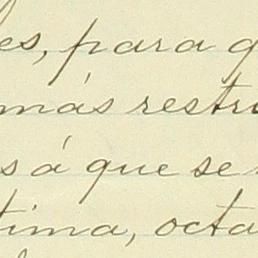 es, para q
más restru
s á que se
tima, octa